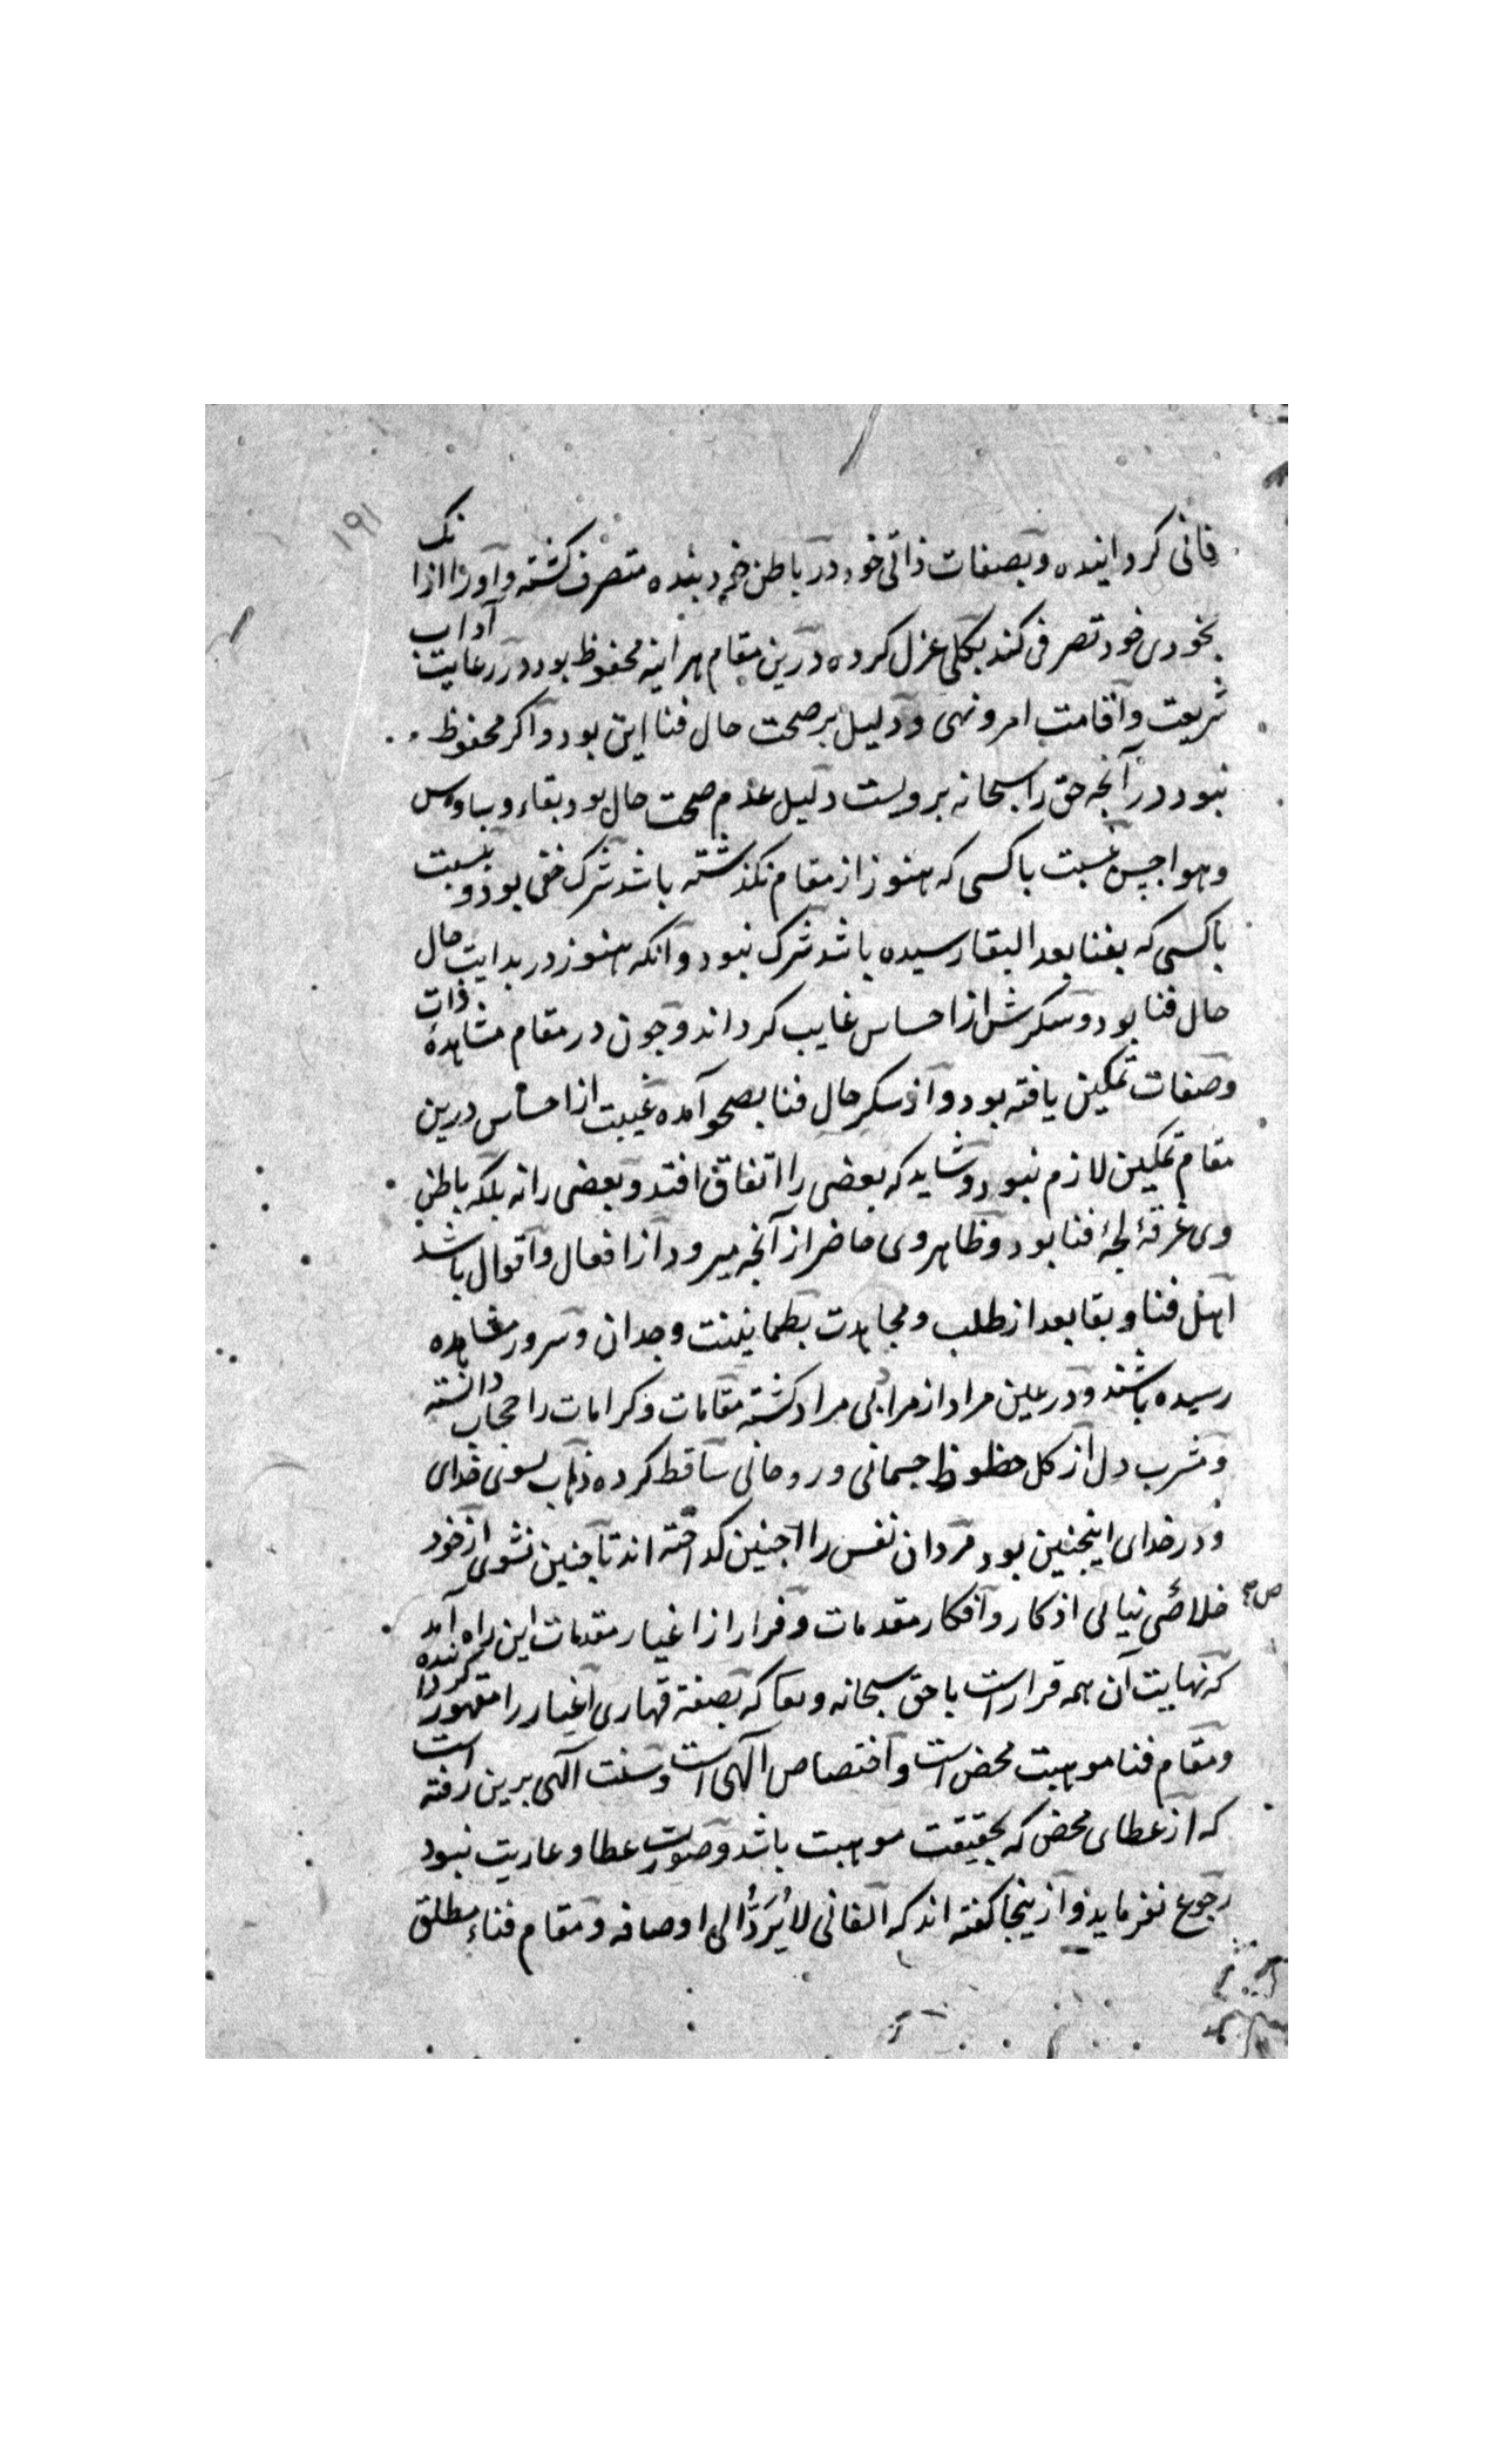 ۱۹۱
فانی کردانیده و بصفات ذاتی خود در باطن خود بنده متصرف کشته و اورا ازانک
بخودی خود تصرفی کند بکلی عزل کرده درین مقام هراینه محفوظ بود در رعایت آداب
شریعت و اقامت امر و نهی و دلیل بر صحت حال فنا این بود و اکر محفوظ
نبود در آنچه حق را سبحانه برویست دلیل عدم صحت حال بود بقاء وساوس
و هواجس نسبت باکسی که هنوز از مقام نکذشته باشد شرک خفی بود و نسبت
باکسی که بفنا بعد البقا رسیده باشد شرک نبود و آنکه هنوز در بدایت حال
حال فنا بود و سکرش از احساس غایب کرداند و چون در مقام مشاهدهٔ ذات
و صفات تمکین یافته بود و از سکر حال فنا بصحو آمده غیبت از احساس درین
مقام تمکین لازم نبود و شاید که بعضی را اتفاق افتد و بعضی را نه بلکه باطن
وی غرقهٔ لجهٔ فنا بود و ظاهر وی حاضر از آنجه میرود از افعال و اقوال باشد
اهل فنا و بقا بعد از طلب و مجاهدت بطمانینت وجدان و سرور مشاهده
رسیده باشند و در عین مراد از مرا بی مراد کشته مقامات و کرامات را حجاب دانسته
و مشرب دل از کل حظوظ جسمانی و روحانی ساقط کرده ذهاب بسوی خدای
و در خدای اینجنین بود مردان نفس را اجنین کداخته اند تا جنین نشوی از خود
خلاصی نیابی اذکار و افکار مقدمات و فرار از اغیار مقدمات این راه آمد
که نهایت آن همه قرار است با حق سبحانه و تعا که بصفة قهاری اغیار را مقهور کرداننده
و مقام فنا موهبت محض است و اختصاص الهی است و سنت الهی برین رفته است
که از عطای محض که بحقیقت موهبت باشد و صورت عطا و عاریت نبود
رجوع نفرماید و ازینجا کفته اند که الفانی لا یُرَدُّ الی اوصافه و مقام فناء مطلق